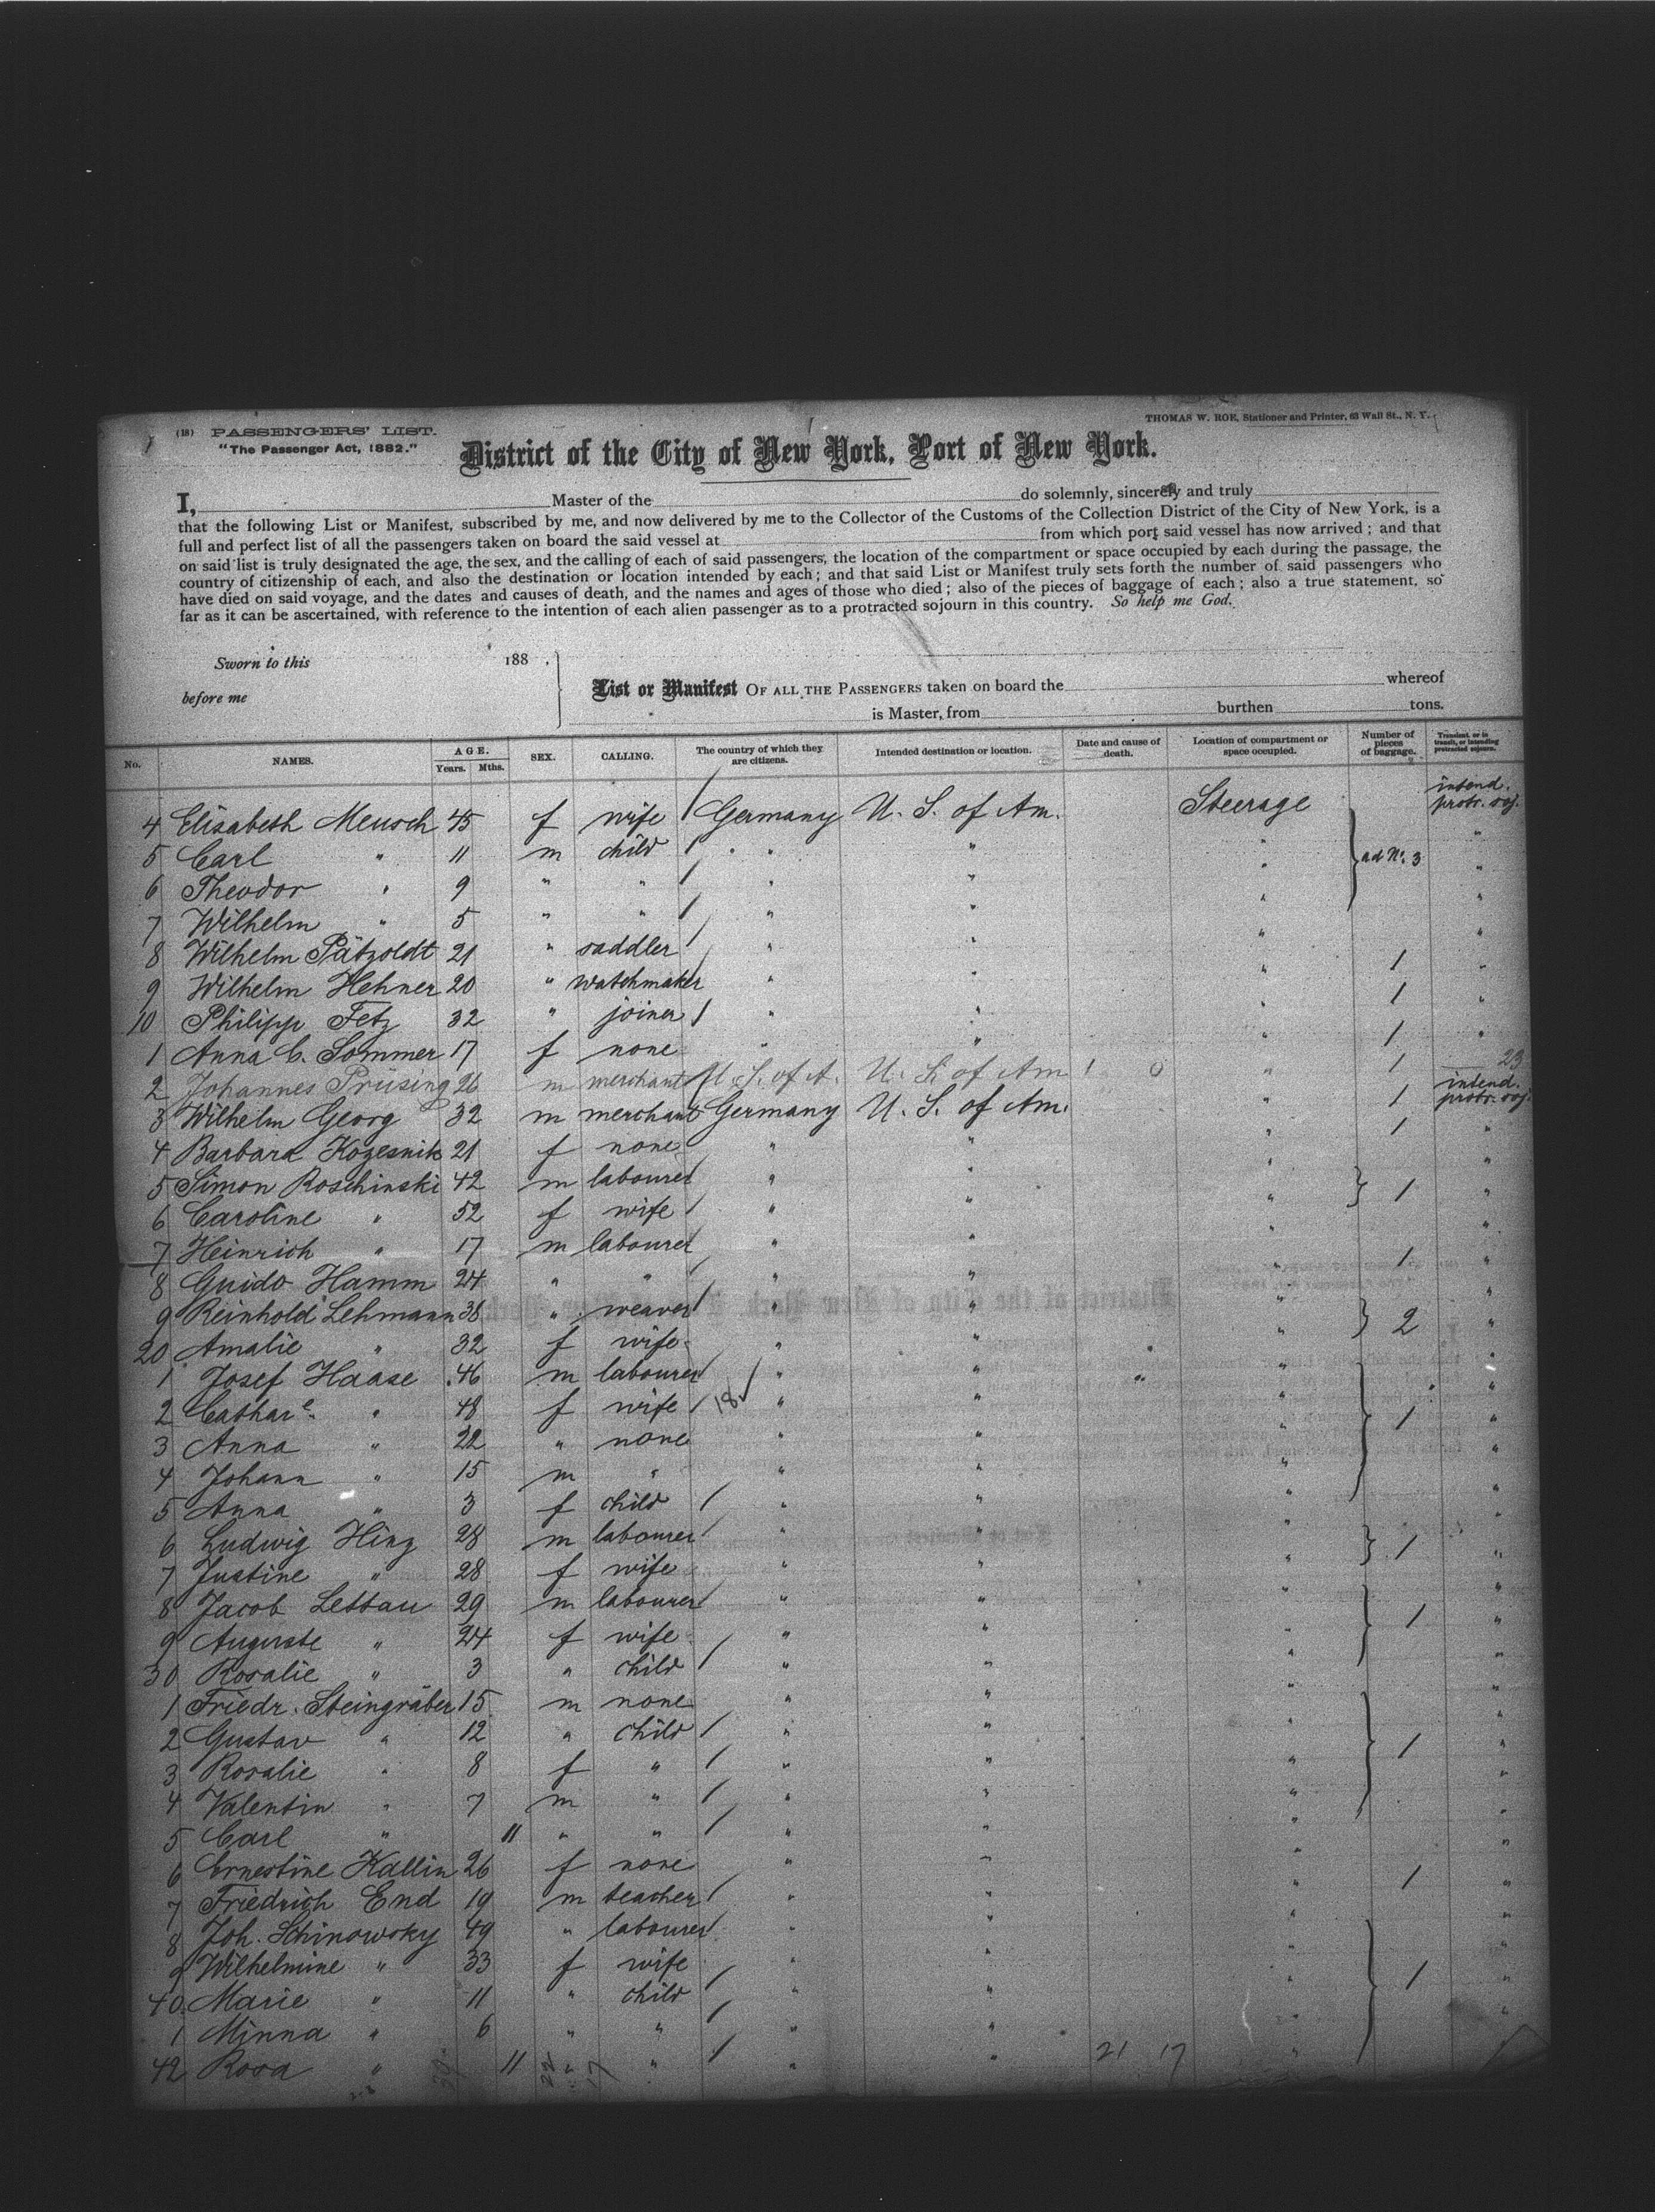 THOMAS W. ROE, Stationer and Printer, 63 Wall St., N. Y.
(18) PASSENGERS' LIST.
"The Passenger Act, 1882."
District of the City of New York, Port of New York.
I, Master of the do solemnly, sincerely and truly
that the following List or Manifest, subscribed by me, and now delivered by me to the Collector of the Customs of the Collection District of the City of New York, is a
full and perfect list of all the passengers taken on board the said vessel at from which port said vessel has now arrived; and that
on said list is truly designated the age, the sex, and the calling of each of said passengers, the location of the compartment or space occupied by each during the passage, the
country of citizenship of each, and also the destination or location intended by each; and that said List or Manifest truly sets forth the number of said passengers who
have died on said voyage, and the dates and causes of death, and the names and ages of those who died; also of the pieces of baggage of each; also a true statement, so
far as it can be ascertained, with reference to the intention of each alien passenger as to a protracted sojourn in this country. So help me God.
Sworn to this 188 .
before me
List or Manifest OF ALL THE PASSENGERS taken on board the whereof
is Master, from burthen tons.
No. NAMES. AGE. Years. Mths. SEX. CALLING. The country of which they are citizens. Intended destination or location. Date and cause of death. Location of compartment or space occupied. Number of pieces of baggage. Transient, or in transit, or intending protracted sojourn.
4 Elisabeth Meusch 45 f wife Germany U. S. of Am. Steerage intend. protr. soj.
5 Carl " 11 m child " " " ad No. 3 "
6 Theodor " 9 " " " " " "
7 Wilhelm " 5 " " " " " "
8 Wilhelm Pätzoldt 21 " saddler " " " 1 "
9 Wilhelm Hehner 20 " watchmaker " " " 1 "
10 Philipp Fetz 32 " joiner " " " 1 "
1 Anna C. Sommer 17 f none " " " 1
2 Johannes Prüsing 26 m merchant U. S. of A. U. S. of Am " 1 23
3 Wilhelm Georg 32 m merchant Germany U. S. of Am. " 1 intend. protr. soj.
4 Barbara Kozesnik 21 f none " " " "
5 Simon Roschinski 42 m labourer " " " 1 "
6 Caroline " 52 f wife " " " "
7 Heinrich " 17 m labourer " " " "
8 Guido Hamm 24 " " " " " 1 "
9 Reinhold Lehmann 38 " weaver " " " 2 "
20 Amalie " 32 f wife " " " "
1 Josef Haase 46 m labourer " " " "
2 Cathare. " 48 f wife 18 " " " 1 "
3 Anna " 22 " none " " " "
4 Johann " 15 m " " " " "
5 Anna " 3 f child " " " "
6 Ludwig Hinz 28 m labourer " " " 1 "
7 Justine " 28 f wife " " " "
8 Jacob Lettau 29 m labourer " " " 1 "
9 Auguste " 24 f wife " " " "
30 Rosalie " 3 " child " " " "
1 Friedr. Steingräber 15 m none " " " "
2 Gustav " 12 " child " " " 1 "
3 Rosalie " 8 f " " " " "
4 Valentin " 7 m " " " " "
5 Carl " 11 " " " " " "
6 Ernestine Kallin 26 f none " " " 1 "
7 Friedrich End 19 m teacher " " " "
8 Joh. Schinowsky 49 " labourer " " " "
9 Wilhelmine " 33 f wife " " " 1 "
40 Marie " 11 " child " " " "
1 Minna " 6 " " " " "
42 Rosa " 11 " " " " 21 17 "